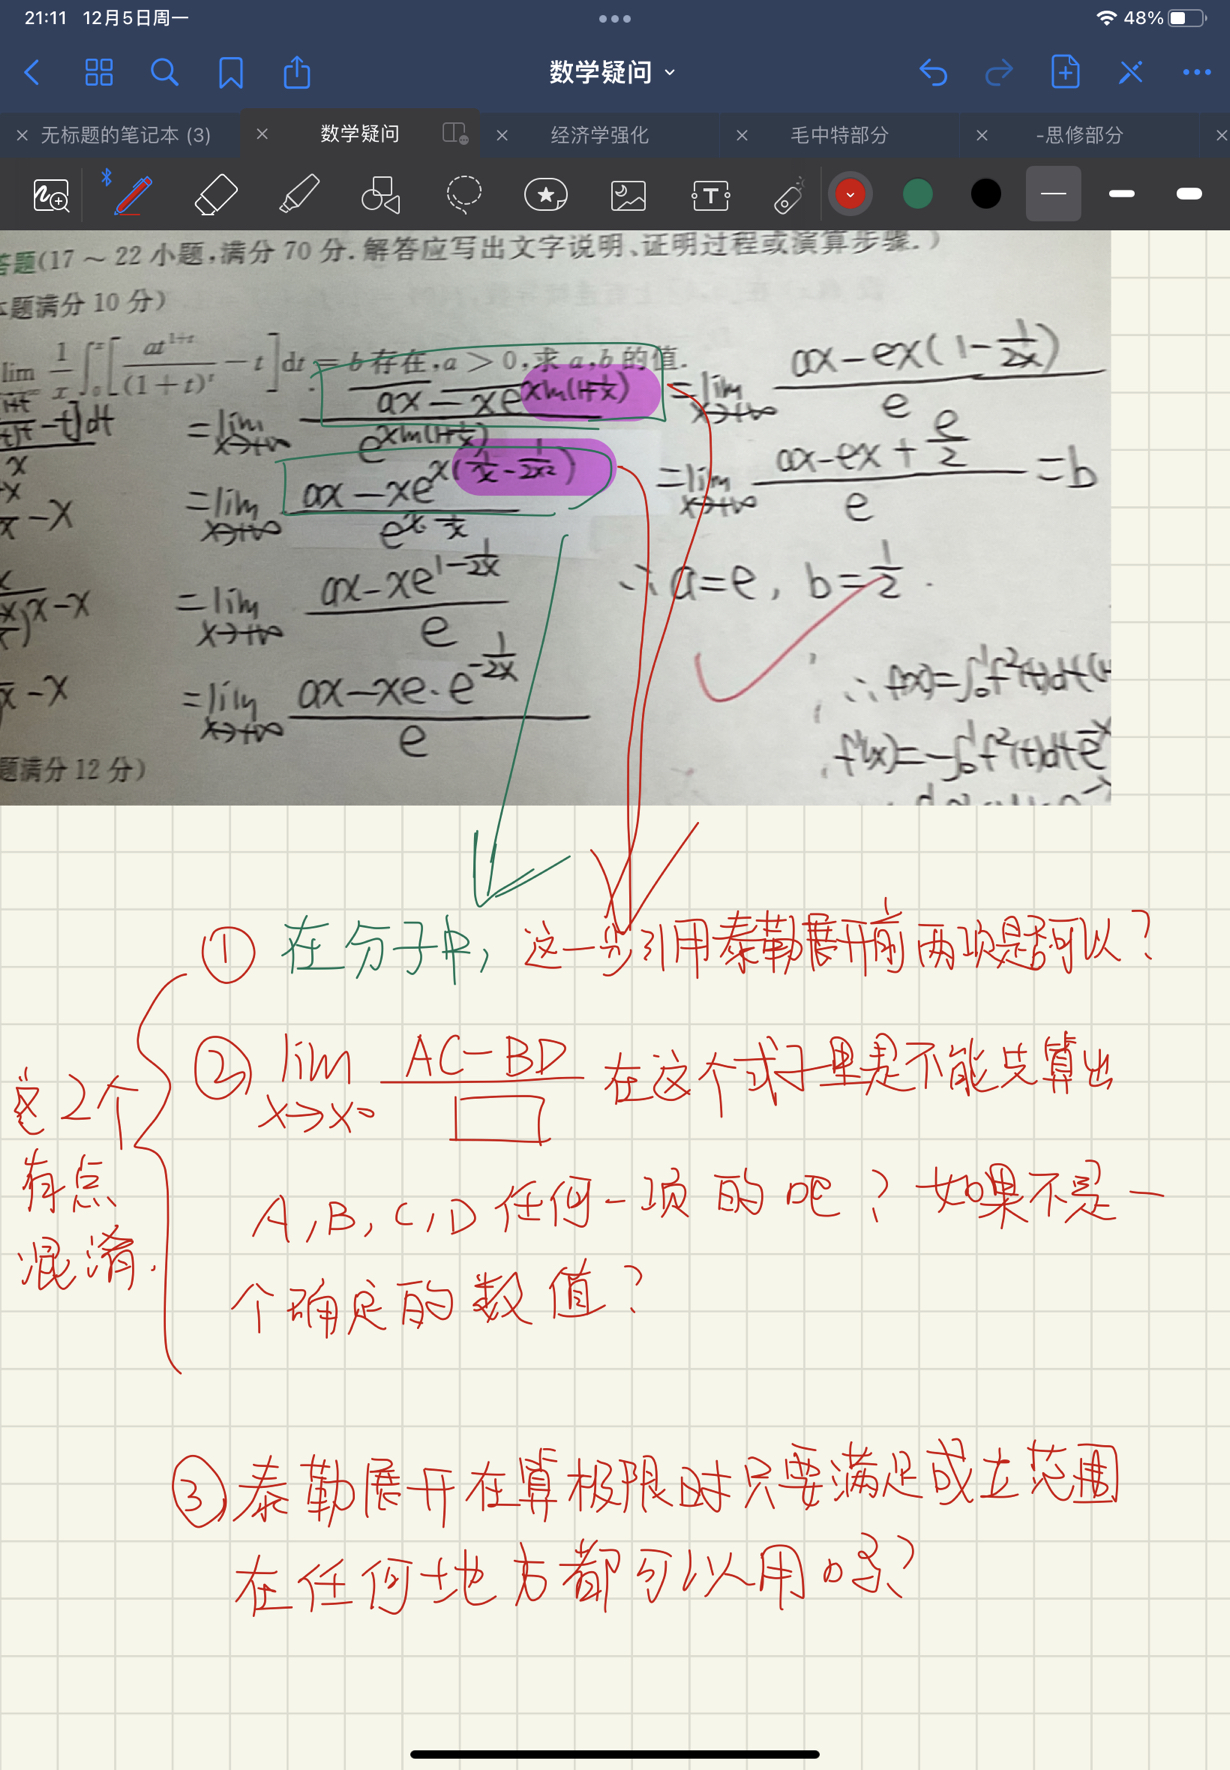 21:11 12月5日周一
48%
数学疑问
无标题的笔记本 (3)
数学疑问
经济学强化
毛中特部分
-思修部分
答题(17 ~ 22 小题,满分 70 分. 解答应写出文字说明、证明过程或演算步骤.)
本题满分 10 分)
lim 1/x ∫₀ˣ [at^(1+t)/(1+t)^t − t] dt = b 存在, a > 0, 求 a, b 的值.
t] dt
x
= lim x→+∞ (ax − xe^(xln(1+1/x))) / e^(xln(1+1/x))
= lim x→+∞ (ax − xe^(x(1/x − 1/2x²))) / e^(x·1/x)
= lim x→+∞ (ax − xe^(1−1/2x)) / e
= lim x→+∞ (ax − xe·e^(−1/2x)) / e
= lim x→+∞ (ax − ex(1 − 1/2x)) / e
= lim x→+∞ (ax − ex + e/2) / e = b
∴ a = e, b = 1/2.
∴ f(x) = ∫₀¹ f²(t)dt
f'(x) = −∫₀¹ f²(t)dt e^-x
题满分 12 分)
① 在分子中, 这一步引用泰勒展开前两项是否可以?
② lim x→x₀ (AC−BD)/□ 在这个式子里是不能先算出
A, B, C, D 任何一项的吧? 如果不是一
个确定的数值?
这2个
有点
混淆.
③ 泰勒展开在算极限时只要满足成立范围
在任何地方都可以用吗?